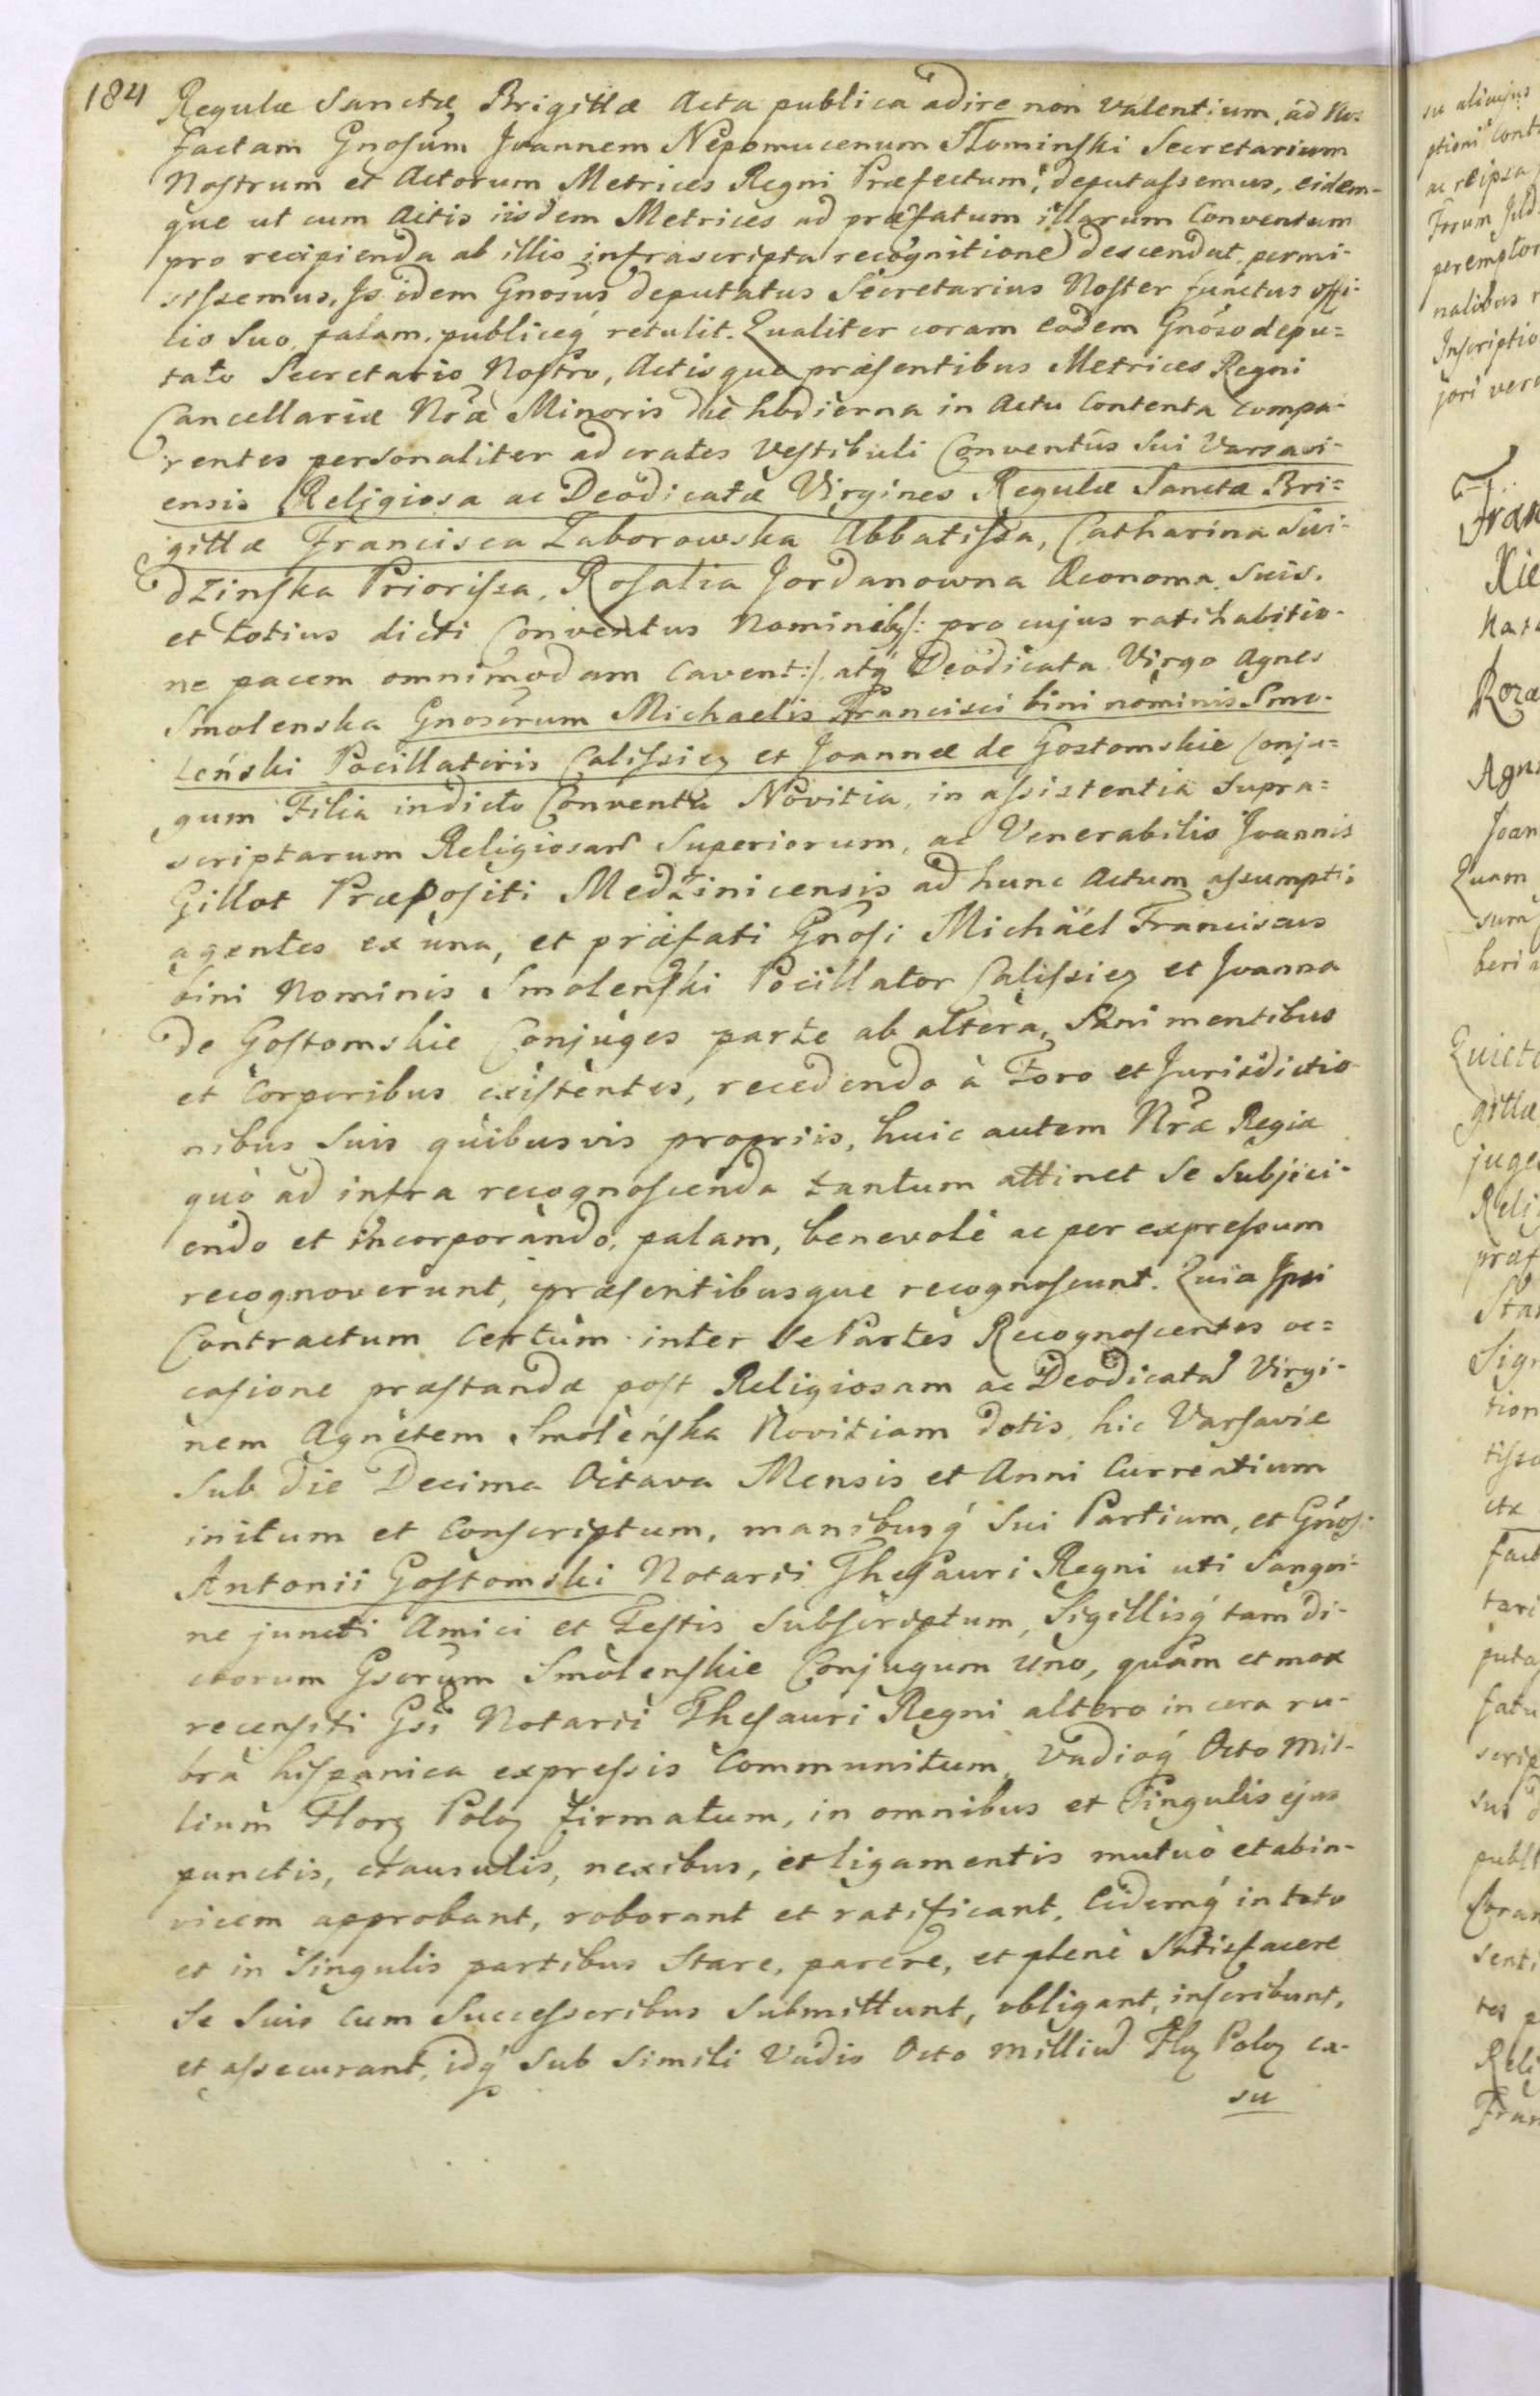 184
Regulæ Sanctæ Brigittæ Acta publica adire non valentium, ad Nos
factam Gnosum Joannem Nepomucenum Słominski Secretarium
Nostrum et Actorum Metrices Regni Præfectum, deputassemus, eidem-
que ut cum Actis iisdem Metrices ad præfatum illarum Conventum
pro recipienda ab illis infrascripta recognitione descendat permi-
sissemus, Is idem Gnosus deputatus Secretarius Noster functus offi-
cio Suo, palam, publiceq́ retulit. Qualiter coram eodem Gnoso depu=
tato Secretario Nostro, Actisque præsentibus Metrices Regni
Cancellariæ Nræ Minoris die hodierna in Actu Contenta compa-
rentes personaliter ad crates Vestibuli Conventus Sui Varsavi-
ensis Religiosæ ac Deodicatæ Virgines Regulæ Sanctæ Bri=
gittæ Francisca Zaborowska Abbatissa, Catharina Swi-
dzinska Priorissa, Rosalia Jordanowna Œconoma, Suis.
et totius dicti Conventus Nominibq /: pro cujus ratihabitio-
ne pacem omnimodam cavent :/ atq́ Deodicata Virgo Agnes
Smolenska Gnosorum Michaelis Francisci bini nominis Smo-
leński Pocillatoris Calissień et Joannæ de Gostomskie Conju=
gum Filia in dicto Conventu Novitia, in assistentia Supra=
scriptarum Religiosarũ Superiorum, ac Venerabilis Joannis
Gillot Præpositi Medzinicensis ad hunc Actum assumpti,
agentes ex una, et præfati Gnosi Michäel Franciscus
bini Nominis Smolenski Pocillator Calissień et Joanna
de Gostomskie Conjuges parte ab altera, Sani mentibus
et Corporibus existentes, recedendo à Foro et Jurisdictio-
nibus Suis quibusvis propriis, huic autem Nræ Regiæ
quò ad infra recognoscenda tantum attinet Se Subjici-
endo et incorporando, palam, benevolè ac per expressum
recognoverunt, præsentibusque recognoscunt. Quia Ipsi
Contractum Certum inter Se Partes Recognoscentes oc=
casione præstandæ post Religiosam ac Deodicatã Virgi-
nem Agnetem Smoleńska Novitiam dotis, hic Varsaviæ
Sub die Decima Octava Mensis et Anni Currentium
initum et Conscriptum, manibusq́ Sui Partium, et Gnosi
Antonii Gostomski Notarii Thesauri Regni uti Sangvi-
ne juncti Amici et Testis Subscriptum, Sigillisq́ tam di-
ctorum Gsorum Smolenskie Conjugum Uno, quàm et mox
recensiti Gsi Notarii Thesauri Regni altero in cera ru-
bra hispanica expressis Communitum, Vadioq́ Octo Mil-
lium Florę Poloń firmatum, in omnibus et Singulis ejus
punctis, clausulis, nexibus, et ligamentis mutuò et abin-
vicem approbant, roborant et ratificant. Eidemq́ in toto
et in Singulis partibus Stare, parere, et plenè Satisfacere
Se Suis cum Successoribus Submittunt, obligant, inscribunt,
et assecurant, idq́ Sub Simili Vadio Octo milliũ Flŋ Poloń ex-
su